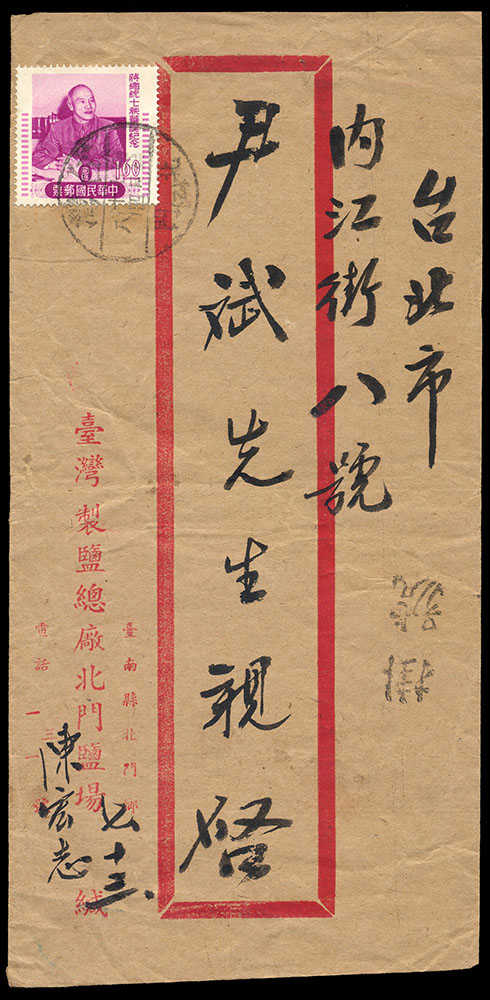 台北市
內江街八號
尹斌先生親啓
蔣總統七秩華誕紀念
160
中華民國郵票
掛號
臺南縣北門鄉
臺灣製鹽總廠北門鹽場緘
電話一三一
陳宏志
七十三、